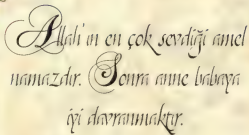 Allah'ın en çok sevdiği amel
namazdır. Sonra anne babaya
iyi davranmaktır.